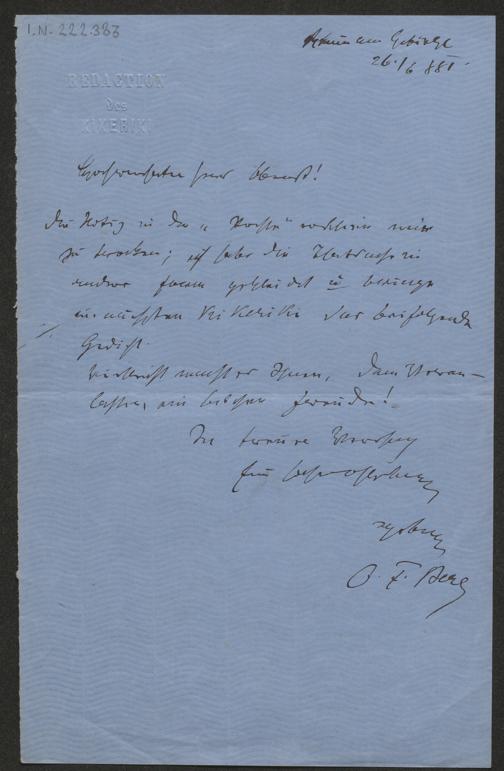 I.N. 222.383
Brunn am Gebirge
26./6 881.
REDACTION
des
KIKERIKI
Hochverehrter Herr
Die Notiz in der „ " erschien mir
zu trocken; ich habe die Thatsache in
andere Form gekleidet u bringe
im nächsten Kikeriki das beifolgende
Gedicht.
Vielleicht macht es Ihnen, dem Veran-
lasser, ein bischen Freude!
In
Ihr
ergebener
O. F. Berg